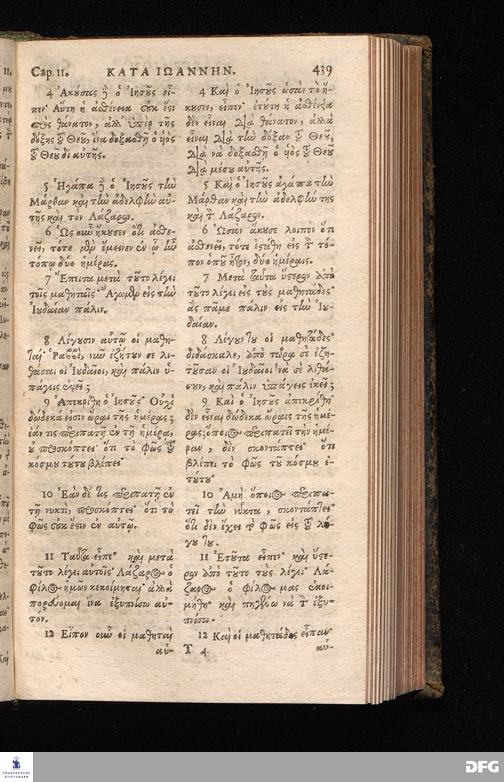 Cap. 11. ΚΑΤΑ ΙΩΑΝΝΗΝ. 439
4 Ἀκούσας δὲ ὁ Ἰησοῦς εἶ-
πεν· Αὕτη ἡ ἀσθένεια οὐκ ἔστι
πρὸς θάνατον, ἀλλ' ὑπὲρ τῆς
δόξης τοῦ Θεοῦ, ἵνα δοξασθῇ ὁ υἱὸς
τοῦ Θεοῦ δι' αὐτῆς.
5 Ἠγάπα δὲ ὁ Ἰησοῦς τὴν
Μάρθαν καὶ τὴν ἀδελφὴν αὐ-
τῆς καὶ τὸν Λάζαρον.
6 Ὡς οὖν ἤκουσεν ὅτι ἀσθε-
νεῖ, τότε μὲν ἔμεινεν ἐν ᾧ ἦν
τόπῳ δύο ἡμέρας.
7 Ἔπειτα μετὰ τοῦτο λέγει
τοῖς μαθηταῖς· Ἄγωμεν εἰς τὴν
Ἰουδαίαν πάλιν.
8 Λέγουσιν αὐτῷ οἱ μαθη-
ταί· Ῥαββὶ, νῦν ἐζήτουν σε λι-
θάσαι οἱ Ἰουδαῖοι, καὶ πάλιν ὑ-
πάγεις ἐκεῖ;
9 Ἀπεκρίθη ὁ Ἰησοῦς· Οὐχὶ
δώδεκά εἰσιν ὧραι τῆς ἡμέρας;
ἐάν τις περιπατῇ ἐν τῇ ἡμέρᾳ,
οὐ προσκόπτει· ὅτι τὸ φῶς τοῦ
κόσμου τούτου βλέπει·
10 Ἐὰν δέ τις περιπατῇ ἐν
τῇ νυκτὶ, προσκόπτει· ὅτι τὸ
φῶς οὐκ ἔστιν ἐν αὐτῷ.
11 Ταῦτα εἶπε· καὶ μετὰ
τοῦτο λέγει αὐτοῖς· Λάζαρος ὁ
φίλος ἡμῶν κεκοίμηται· ἀλλὰ
πορεύομαι ἵνα ἐξυπνίσω αὐ-
τόν.
12 Εἶπον οὖν οἱ μαθηταὶ
αὐ-
4 Καὶ ὁ Ἰησοῦς ὡσὰν τὸ ἤ-
κουσεν, εἶπεν· ἐτούτη ἡ ἀσθένεια
δὲν εἶναι διὰ θάνατον, ἀλλὰ
εἶναι διὰ τὴν δόξαν τοῦ Θεοῦ,
διὰ νὰ δοξασθῇ ὁ υἱὸς τοῦ Θεοῦ
διὰ μέσου αὐτῆς.
5 Καὶ ὁ Ἰησοῦς ἀγάπα τὴν
Μάρθαν καὶ τὴν ἀδελφήν της
καὶ τὸν Λάζαρον.
6 Ὡσὰν ἄκουσε λοιπὸν ὅτι
ἀσθενεῖ, τότε ἐστάθη εἰς τὸν τό-
πον ὁποῦ ἦτον, δύο ἡμέραις.
7 Μετὰ ταῦτα ὕστερον ἀπὸ
τοῦτο λέγει εἰς τοὺς μαθητάδες·
ἂς πᾶμε πάλιν εἰς τὴν Ἰου-
δαίαν.
8 Λέγουν του οἱ μαθητάδες·
διδάσκαλε, ἀπὸ τώρα σὲ ἐζή-
τουσαν οἱ Ἰουδαῖοι νὰ σὲ λιθά-
σουν, καὶ πάλιν ὑπάγεις ἐκεῖ;
9 Καὶ ὁ Ἰησοῦς ἀπεκρίθη·
δὲν εἶναι δώδεκα ὥραις τῆς ἡμέ-
ρας; ὅποιος περιπατεῖ τὴν ἡμέ-
ραν, δὲν σκοντάπτει· ὅτι
βλέπει τὸ φῶς τοῦ κόσμου ἐ-
τούτου·
10 Ἀμὴ ὅποιος περιπα-
τεῖ τὴν νύκτα, σκοντάπτει·
ὅτι δὲν ἔχει τὸ φῶς εἰς τοῦ λό-
γου του.
11 Ἐτοῦτα εἶπεν· καὶ ὕστε-
ρον ἀπὸ τοῦτο τοὺς λέγει· Λά-
ζαρος ὁ φίλος μας ἐκοι-
μήθη· καὶ πηγαίνω νὰ τὸν ἐξυ-
πνίσω.
12 Καὶ οἱ μαθητάδες εἶπαν·
T 4 αὐ-
DFG